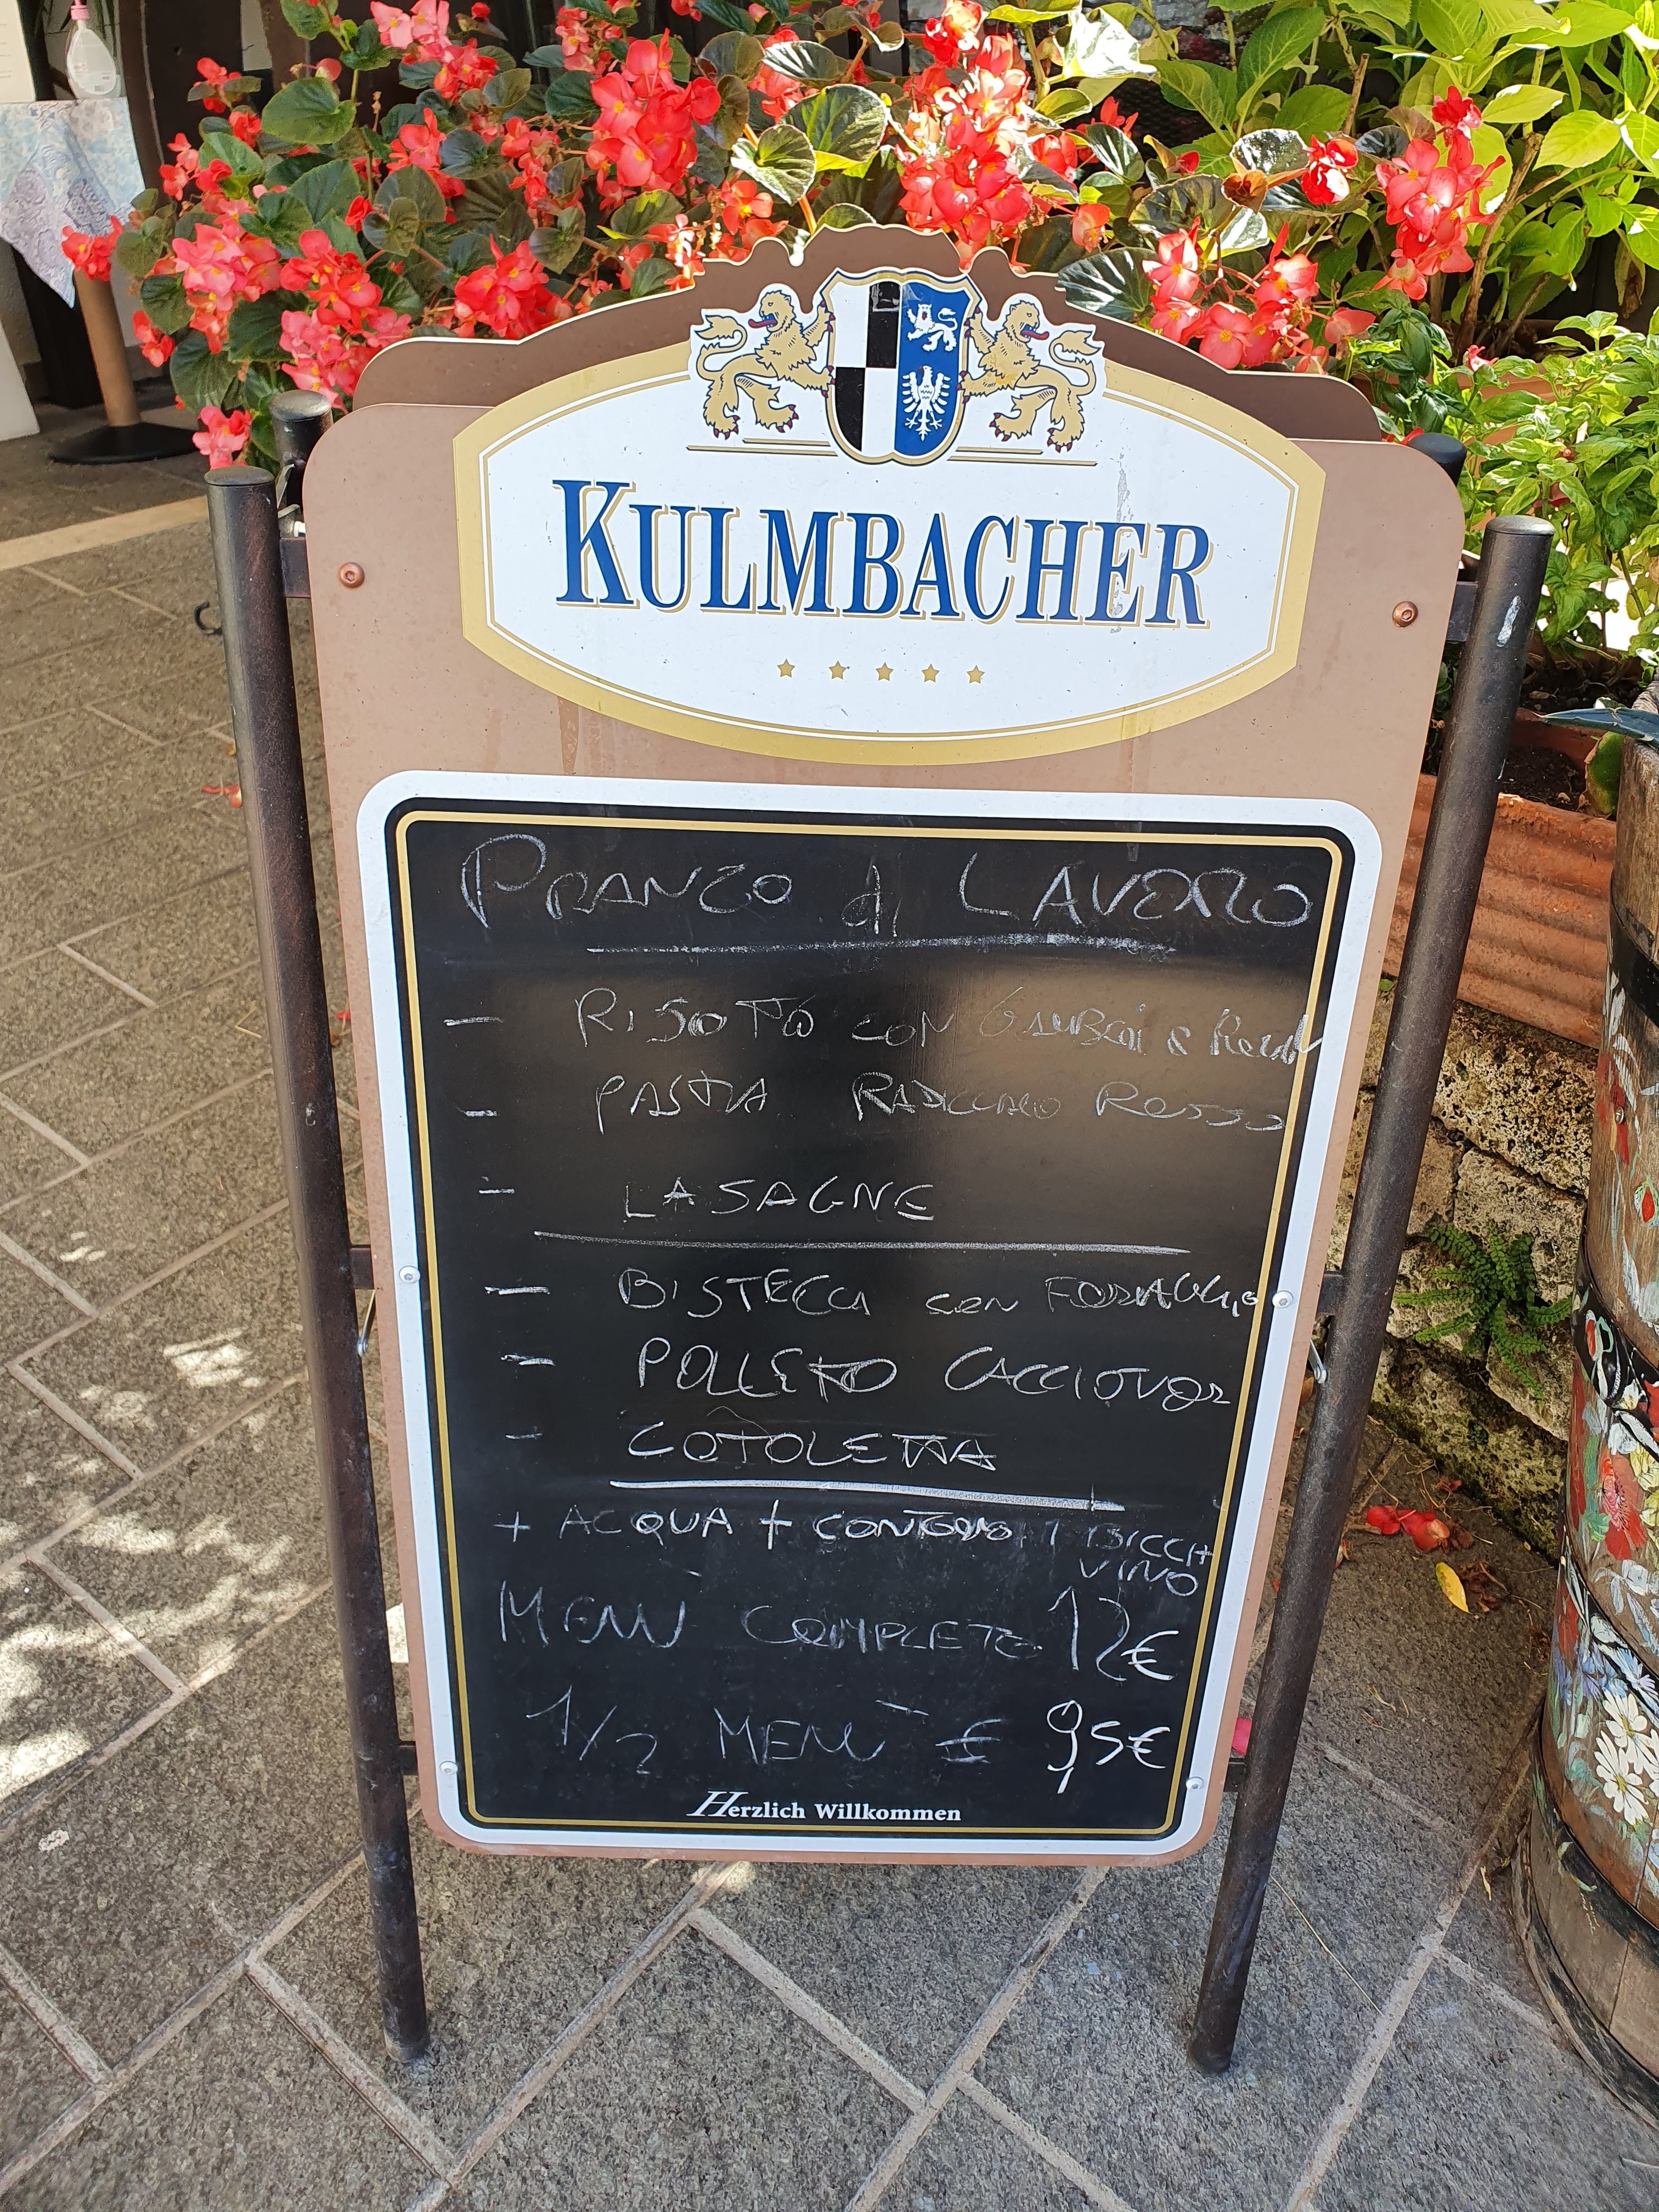 KULMBACHER
PRANZO di LAVORO
- RISOTTO CON GAMBERI &
- PASTA RADICCHIO ROSSO
- LASAGNE
- BISTECCA CON FORMAGGIO
- POLLETTO CACCIATORA
- COTOLETTA
+ ACQUA + CONTORNO 1 BICCH
VINO
MENÙ COMPLETO 12€
1/2 MENÙ € 9,5€
Herzlich Willkommen